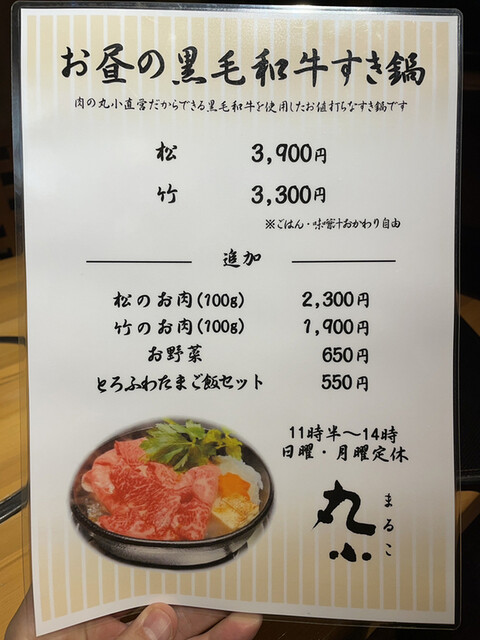 お昼の黒毛和牛すき鍋
肉の丸小直営だからできる黒毛和牛を使用したお値打ちなすき鍋です
松 3,900円
竹 3,300円
※ごはん・味噌汁おかわり自由
追加
松のお肉(100g) 2,300円
竹のお肉(100g) 1,900円
お野菜 650円
とろふわたまご飯セット 550円
11時半～14時
日曜・月曜定休
丸小
まるこ